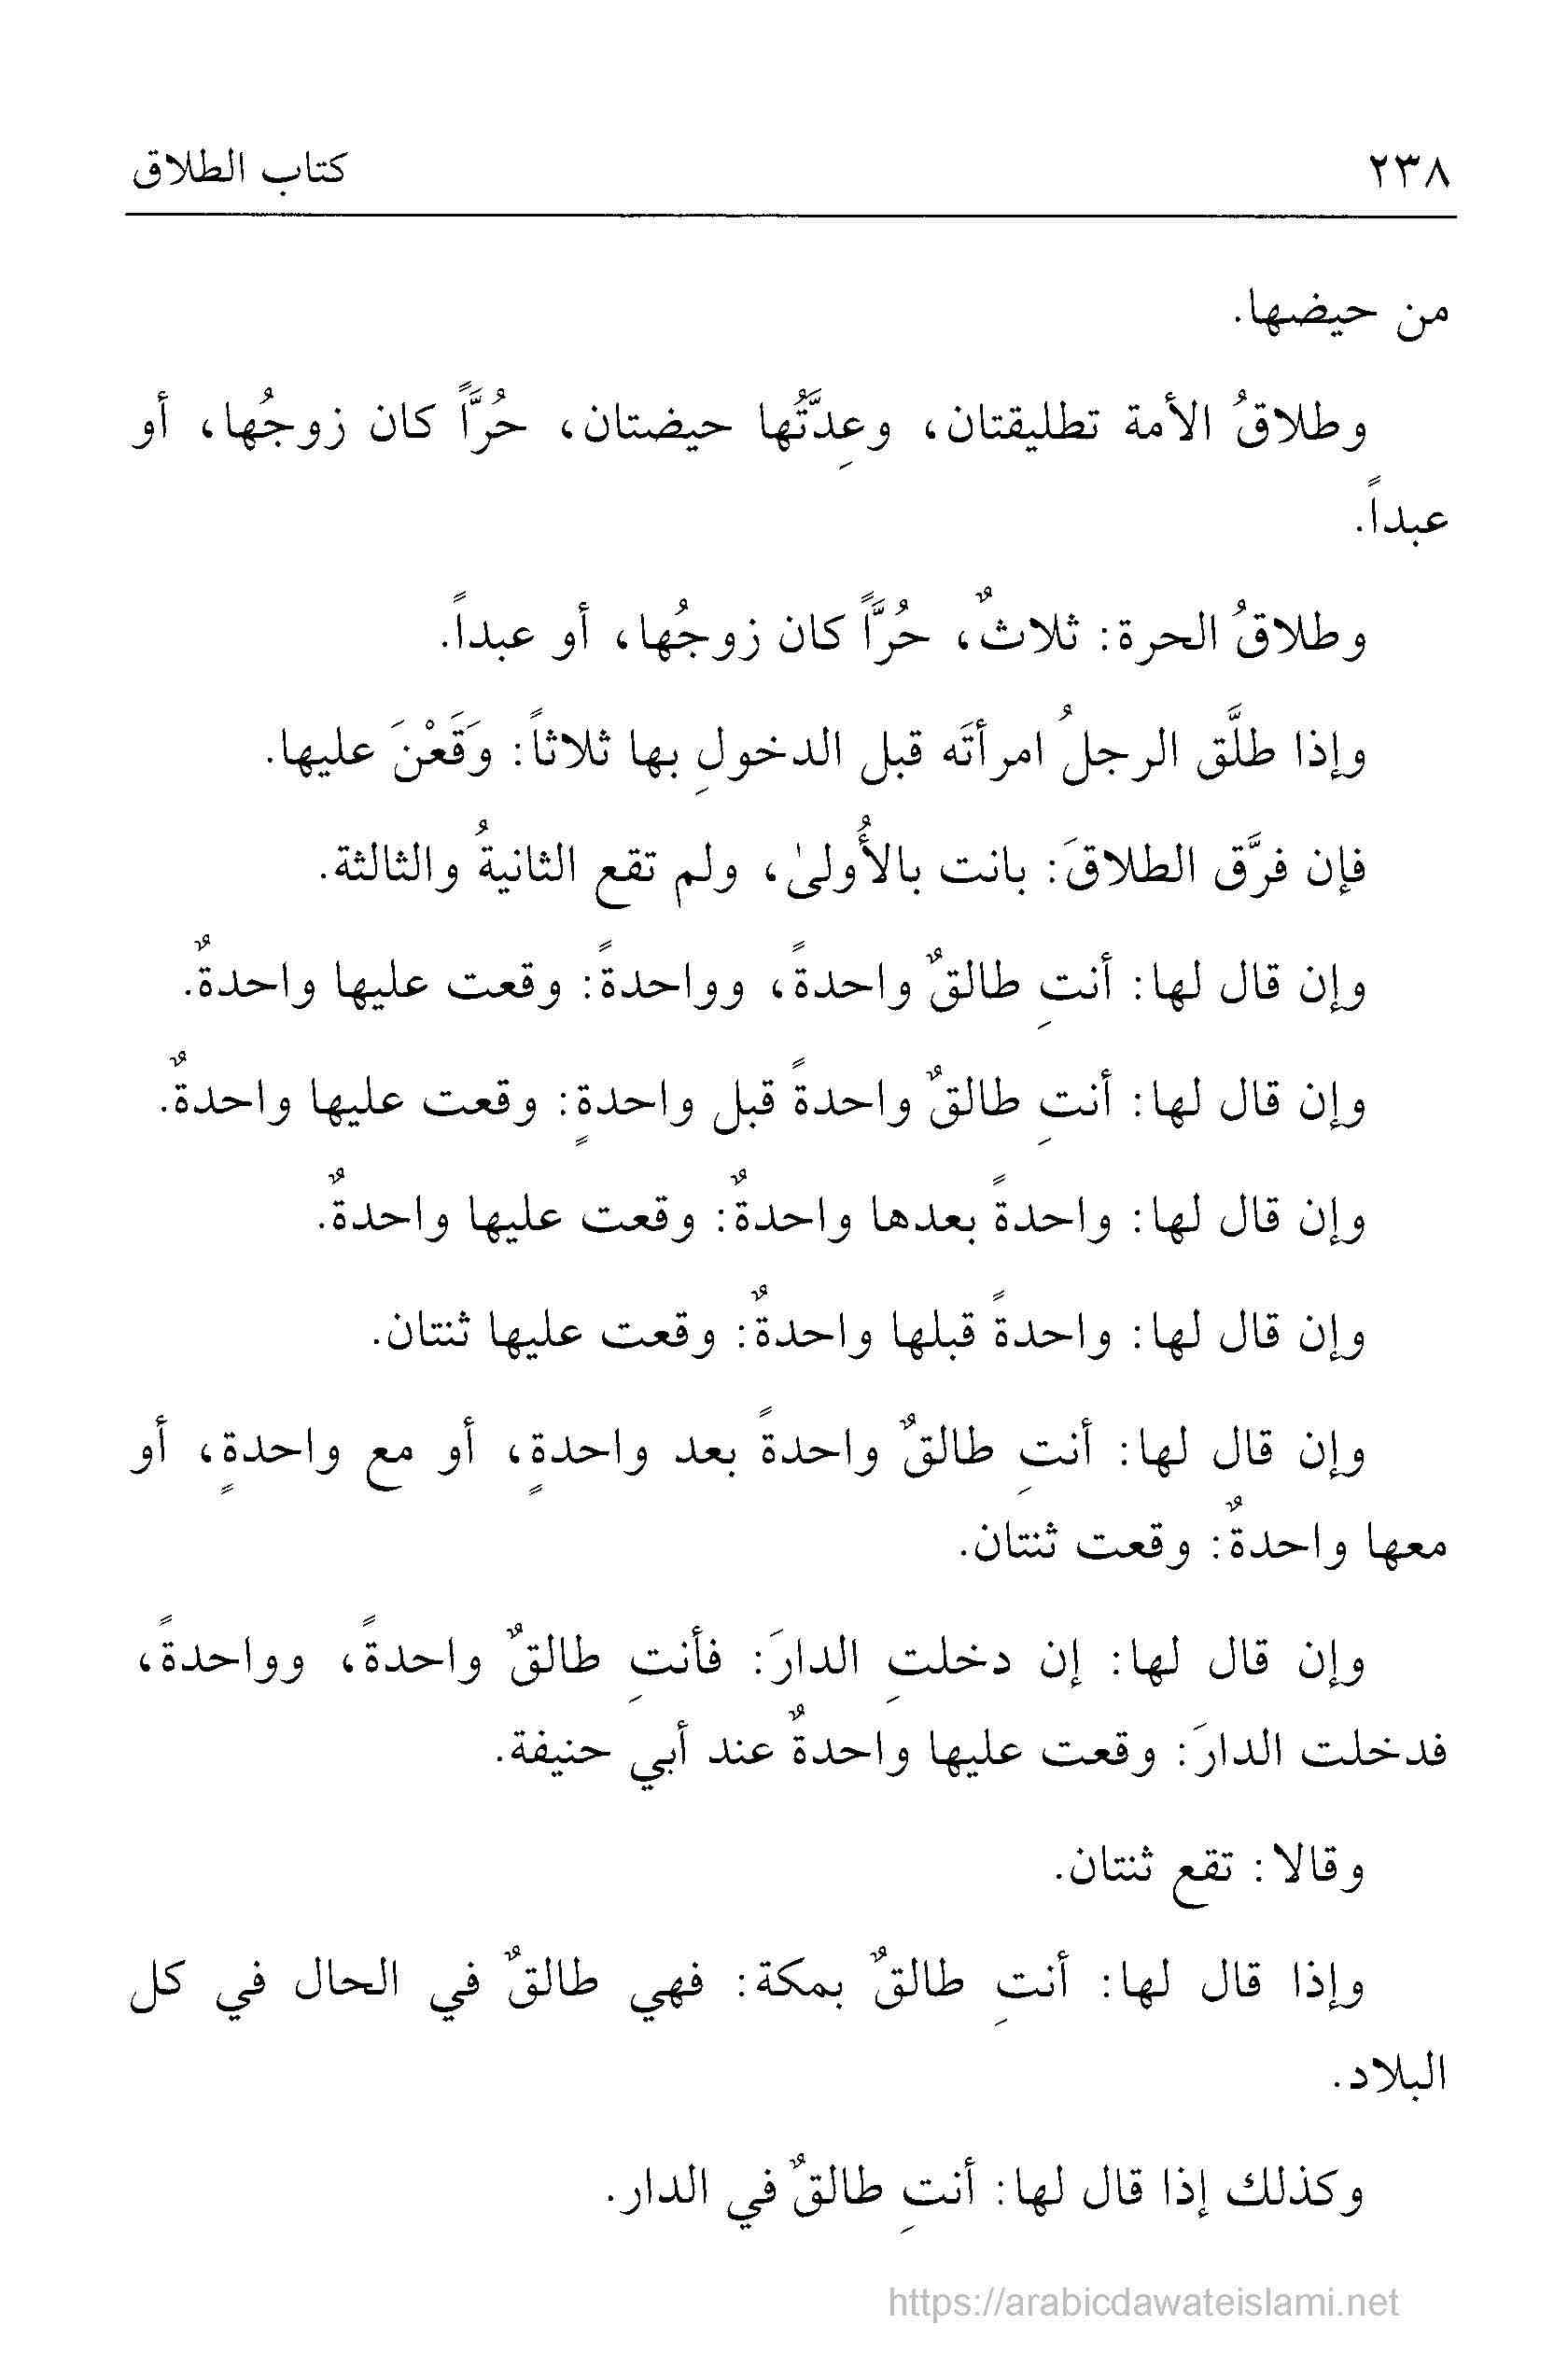 ٢٣٨ كتاب الطلاق
من حيضها.
وطلاقُ الأمة تطليقتان، وعِدَّتُها حيضتان، حُرَّاً كان زوجُها، أو
عبداً.
وطلاقُ الحرة: ثلاثٌ، حُرَّاً كان زوجُها، أو عبداً.
وإذا طلَّق الرجلُ امرأتَه قبل الدخولِ بها ثلاثاً: وَقَعْنَ عليها.
فإن فرَّق الطلاقَ: بانت بالأُولىٰ، ولم تقع الثانيةُ والثالثة.
وإن قال لها: أنتِ طالقٌ واحدةً، وواحدةً: وقعت عليها واحدةٌ.
وإن قال لها: أنتِ طالقٌ واحدةً قبل واحدةٍ: وقعت عليها واحدةٌ.
وإن قال لها: واحدةً بعدها واحدةٌ: وقعت عليها واحدةٌ.
وإن قال لها: واحدةً قبلها واحدةٌ: وقعت عليها ثنتان.
وإن قال لها: أنتِ طالقٌ واحدةً بعد واحدةٍ، أو مع واحدةٍ، أو
معها واحدةٌ: وقعت ثنتان.
وإن قال لها: إن دخلتِ الدارَ: فأنتِ طالقٌ واحدةً، وواحدةً،
فدخلت الدارَ: وقعت عليها واحدةٌ عند أبي حنيفة.
وقالا: تقع ثنتان.
وإذا قال لها: أنتِ طالقٌ بمكة: فهي طالقٌ في الحال في كل
البلاد.
وكذلك إذا قال لها: أنتِ طالقٌ في الدار.
https://arabicdawateislami.net